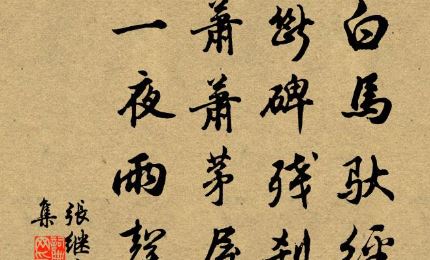 白馬馱經
斷碑残刹
蕭蕭茅屋
一夜雨聲
張继
集